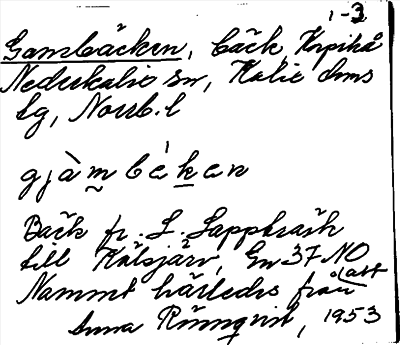 1-3
Gambäcken, bäck, Korpikå
Nederkalix sn, Kalix dms
lg, Norrb. l
gjàmbèken
Bäck fr. L. Lappträsk
till Kälsjärv, Gn 37 NO
Namnet härledes från
Anna Rönnqvist, 1953